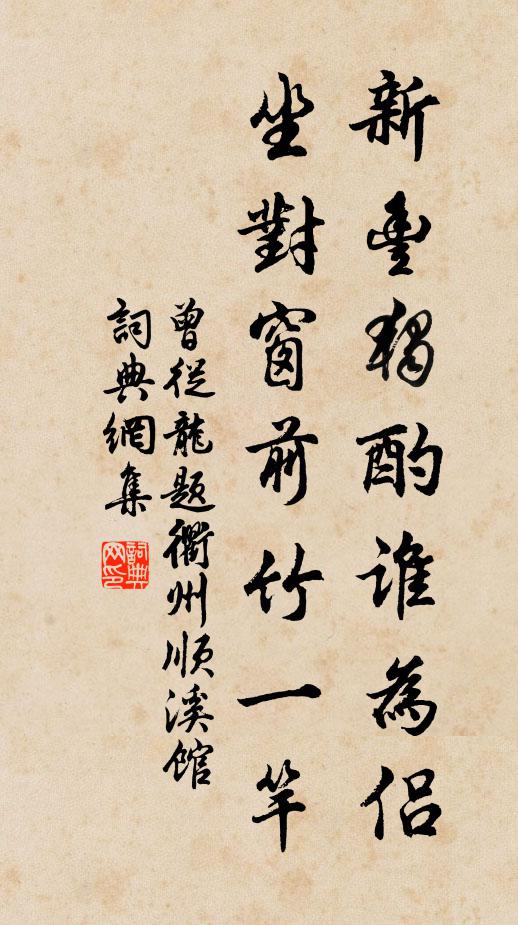 新豊独酌誰為侣
坐對窗前竹一竿
曾從龍題衢州順溪館
詞典網集
詞典網印